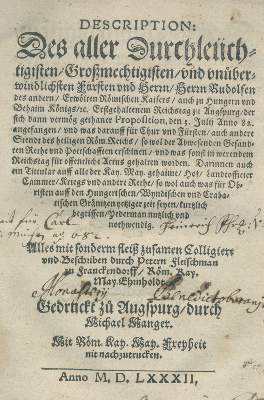 DESCRIPTION:
Des aller Durchleüch-
tigisten/Großmechtigisten/vnd vnüber-
windlichsten Fürsten vnd Herrn/Herrn Rudolfen
des andern/Erwölten Römischen Kaisers/auch zu Hungern vnd
Behaim Königs/ꝛc. Erstgehaltenem Reichstag zu Augspurg/der
sich dann vermög gethaner Proposition, den 3. Julij Anno 82.
angefangen/vnd was darauff für Chur vnd Fürsten/auch andere
Stendt des heiligen Röm. Reichs/so wol der Abwesenden Gesand-
ten Räthe vnd Potschafften erschinen/vnd was sonst in werendem
Reichstag für offentliche Actus gehalten worden. Darinnen auch
ein Titular auff alle der Kay. May. gehaime/Hof/Landsofficier
Cammer/Kriegs vnd andere Räthe/so wol auch was für Ob-
risten auff den Hungerischen/Windischen vnd Craba-
tischen Gränitzen yetziger zeit seyen/kurtzlich
begriffen/Yederman nutzlich vnd
nothwendig.
Alles mit sonderm fleiß zusamen Colligiert
vnd Beschriben durch Petern Fleischman
Franckendorff/Röm. Kay.
May. Ehrnholdt.
Monasterij
Gedruckt zů Augspurg/durch
Michael Manger.
Mit Röm. Kay. May. Freyheit
nit nachzutrucken.
Anno M. D. LXXXII.